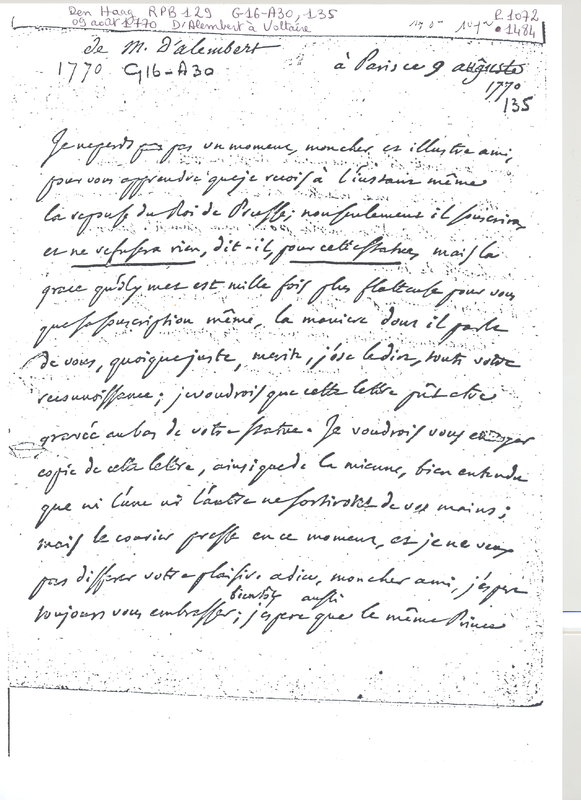 Den Haag RPB 129 G16-A30, 135 P. 1072
09 août 1770 D'Alembert à Voltaire • 1484
de M. D'alembert
1770 G16-A30 à Paris ce 9 auguste
1770
135
Je ne perds pas un moment, mon cher et illustre ami,
pour vous apprendre que je reçois à l'instant même
la reponse du Roi de Prusse; non seulement il souscrira
et ne refusera rien, dit-il, pour cette statue, mais la
grace qu'il y met est mille fois plus flatteuse pour vous
que sa souscription même, la maniere dont il parle
de vous, quoique juste, merite, j'ose le dire, toute votre
reconnoissance; je voudrois que cette lettre pût etre
gravée au bas de votre statue. Je voudrois vous envoyer
copie de cette lettre, ainsi que de la mienne, bien entendu
que ni l'une ni l'autre ne sortiront de vos mains;
mais le courier presse en ce moment, et je ne veux
pas differer votre plaisir. adieu, mon cher ami, j'espere
bientôt aussi
toujours vous embrasser; j'espere que le même Prince